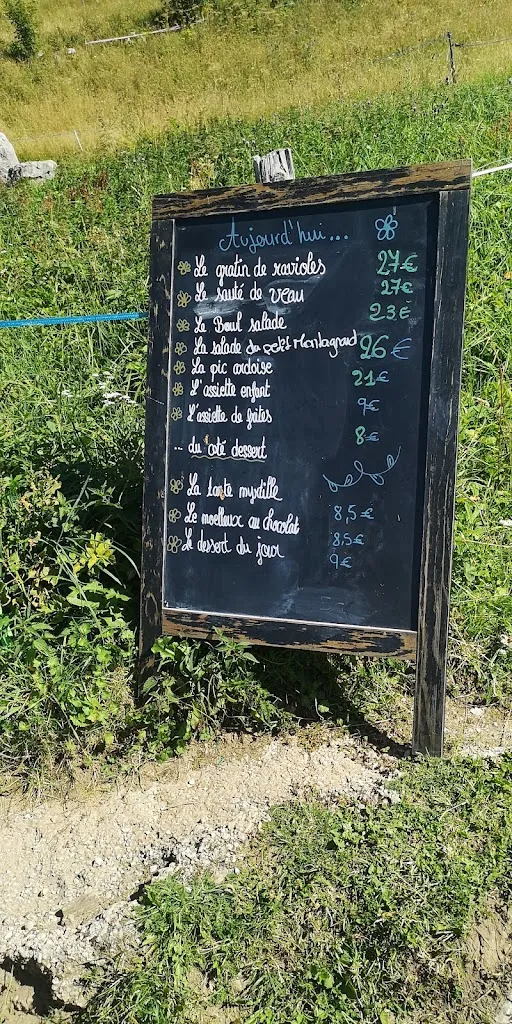 Aujourd'hui...
Le gratin de ravioles 27€
Le sauté de veau 27€
Le Boul salade 23€
La salade du petit Montagnard 26€
La pic ardoise 21€
L'assiette enfant 9€
L'assiette de frites 8€
.. du coté dessert
La tarte myrtille 8,5€
Le moelleux au chocolat 8,5€
Le dessert du jour 9€